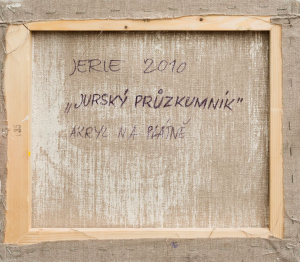 JERIE 2010
„JURSKÝ PRŮZKUMNÍK"
AKRYL NA PLÁTNĚ